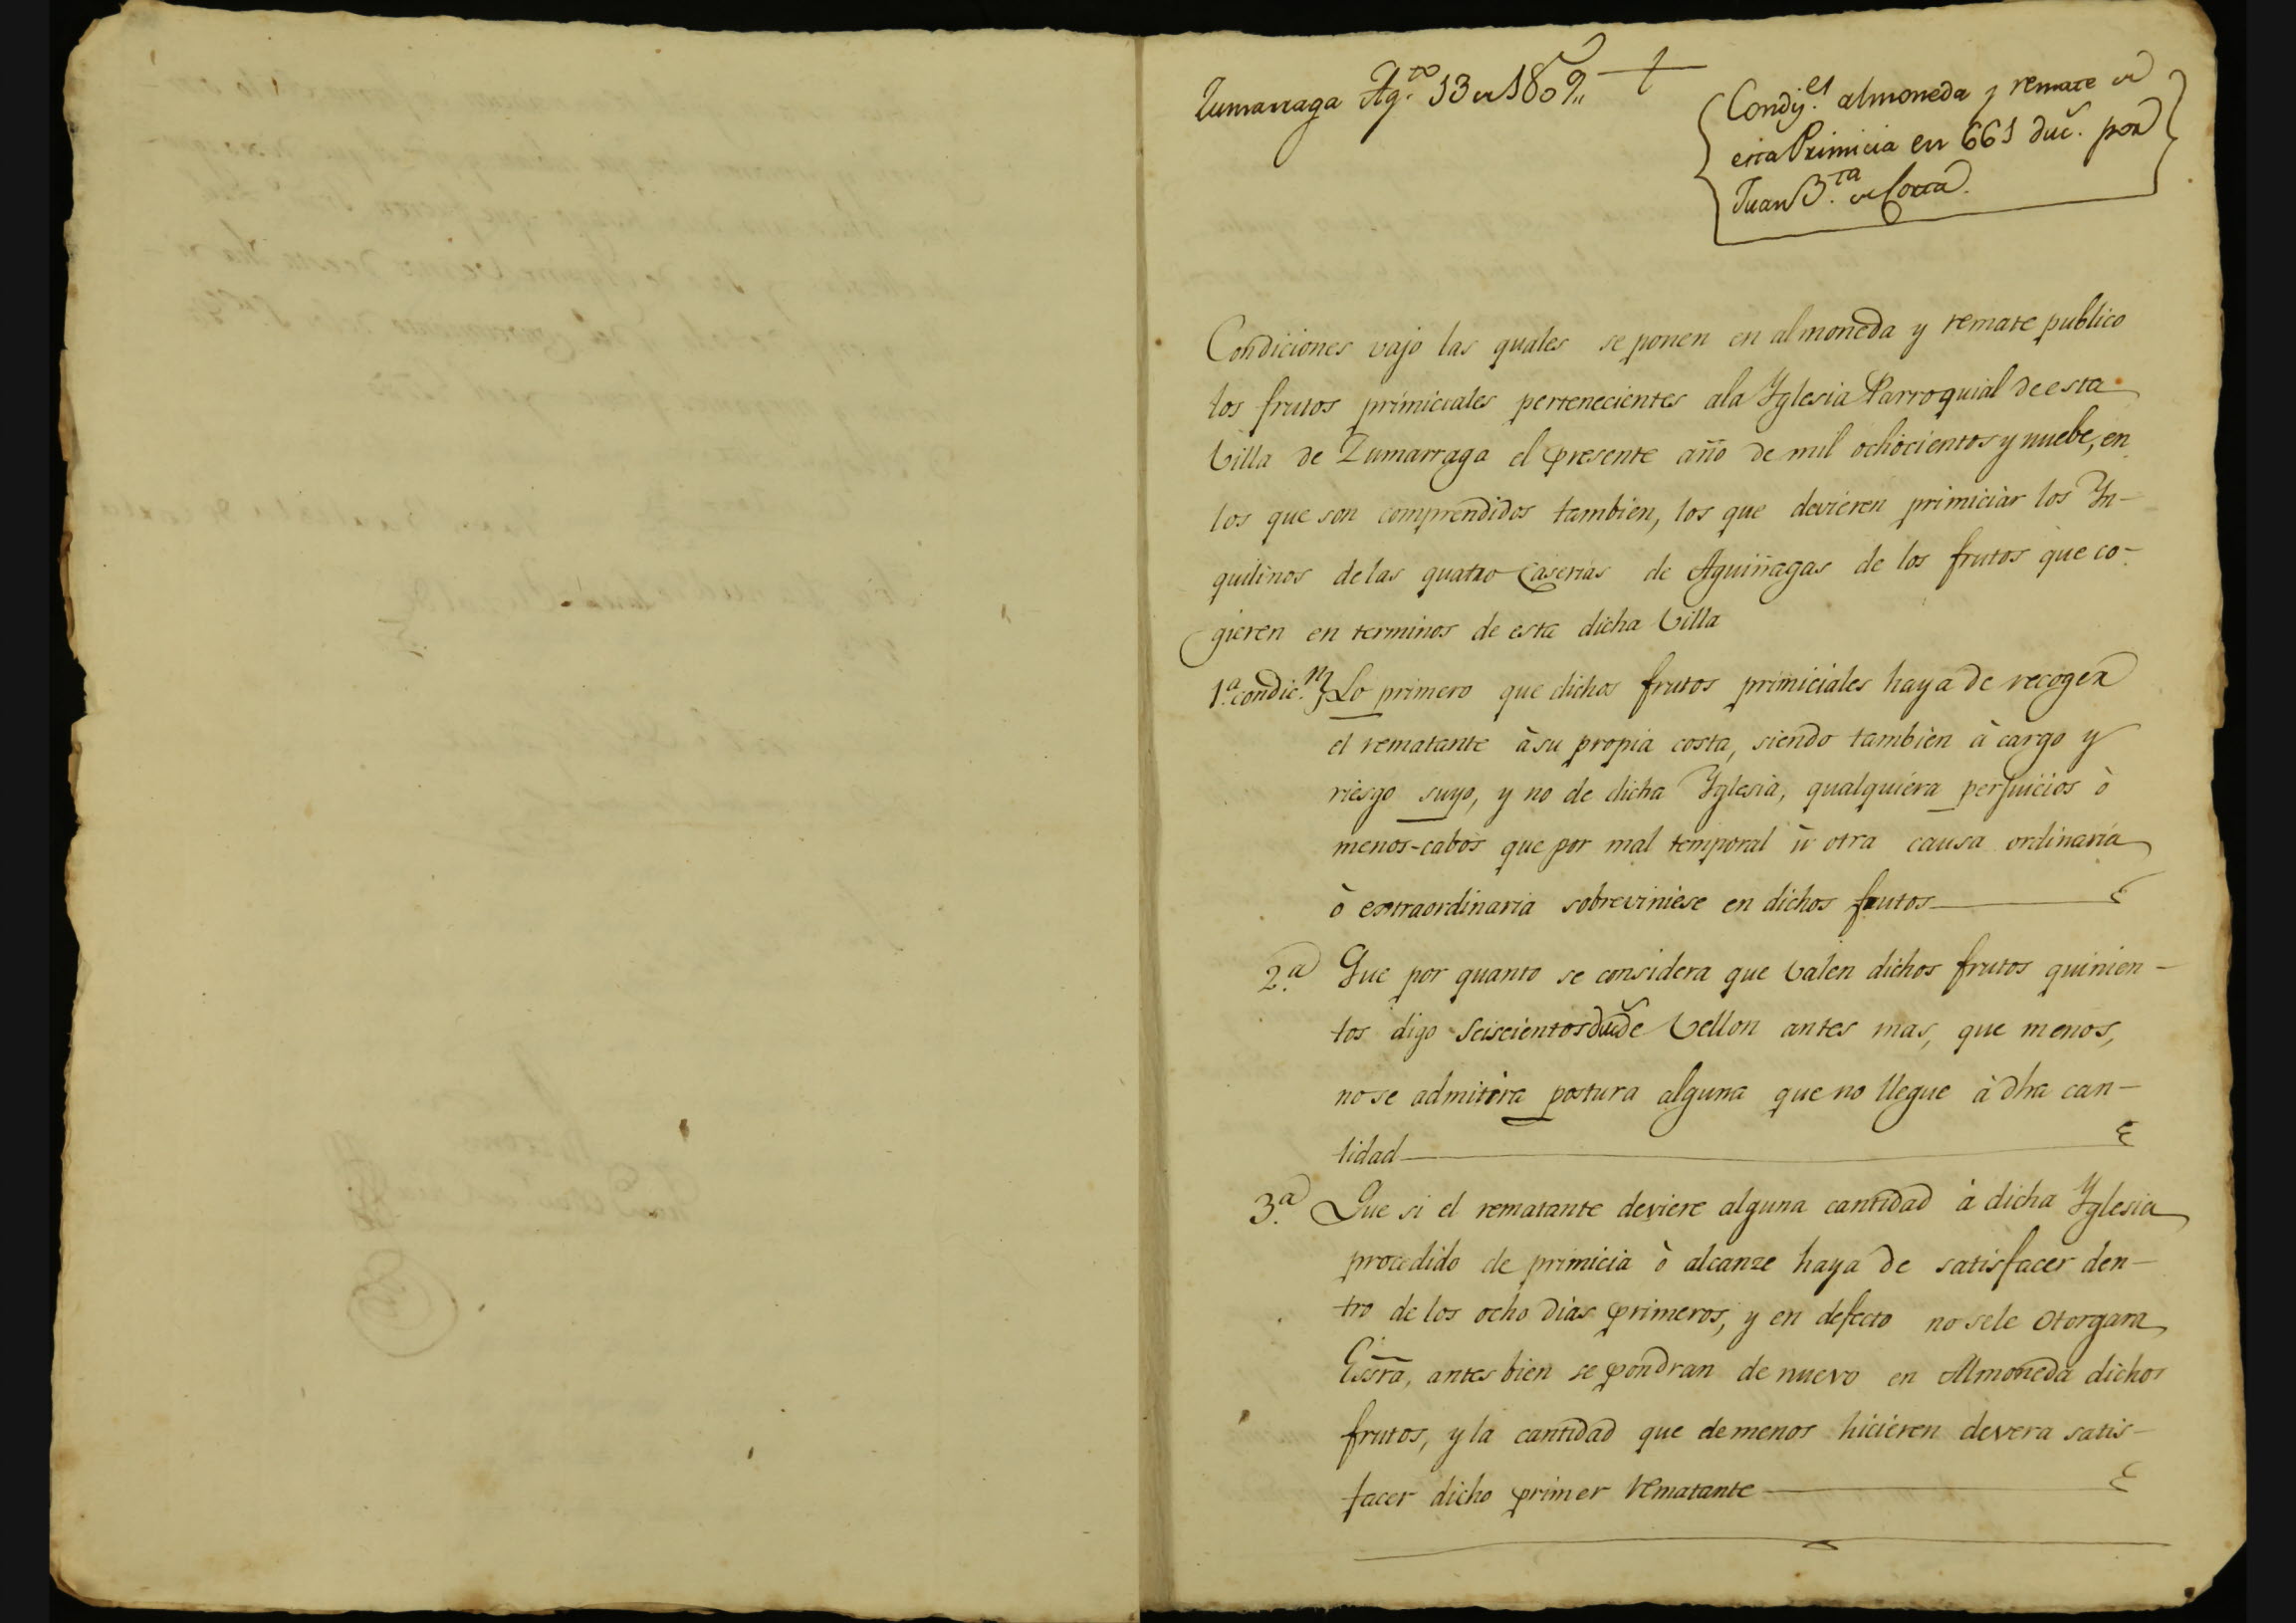 Zumarraga Ag.to 13 de 1809,,
Condiz.es almoneda y remate de
esta Primicia en 661 duc.s por
Juan B.ta de Corta.
Condiciones vajo las quales se ponen en almoneda y remate publico
los frutos primiciales pertenecientes ala Yglesia Parroquial de esta
Villa de Zumarraga el presente año de mil ochocientos y nuebe, en
los que son comprendidos tambien, los que devieren primiciar los Yn-
quilinos delas quatro Caserias de Aguiñagas de los frutos que co-
gieren en terminos de esta dicha Villa
1.a condic.n Lo primero que dichos frutos primiciales haya de recoger
el rematante à su propia costa, siendo tambien à cargo y
riesgo suyo, y no de dicha Yglesia, qualquiera perjuicios ò
menos-cabos que por mal temporal ù otra causa ordinaria
ò extraordinaria sobreviniese en dichos frutos
2.a Que por quanto se considera que valen dichos frutos quinien-
tos digo Seiscientos duc.s de Vellon antes mas, que menos,
no se admitira postura alguna que no llegue à dha can-
tidad
3.a Que si el rematante deviere alguna cantidad à dicha Yglesia
procedido de primicia ò alcanze haya de satisfacer den-
tro de los ocho dias primeros, y en defecto no sele otorgara
Essra, antes bien se pondran de nuevo en Almoneda dichos
frutos, y la cantidad que de menos hicieren devera satis-
facer dicho primer rematante